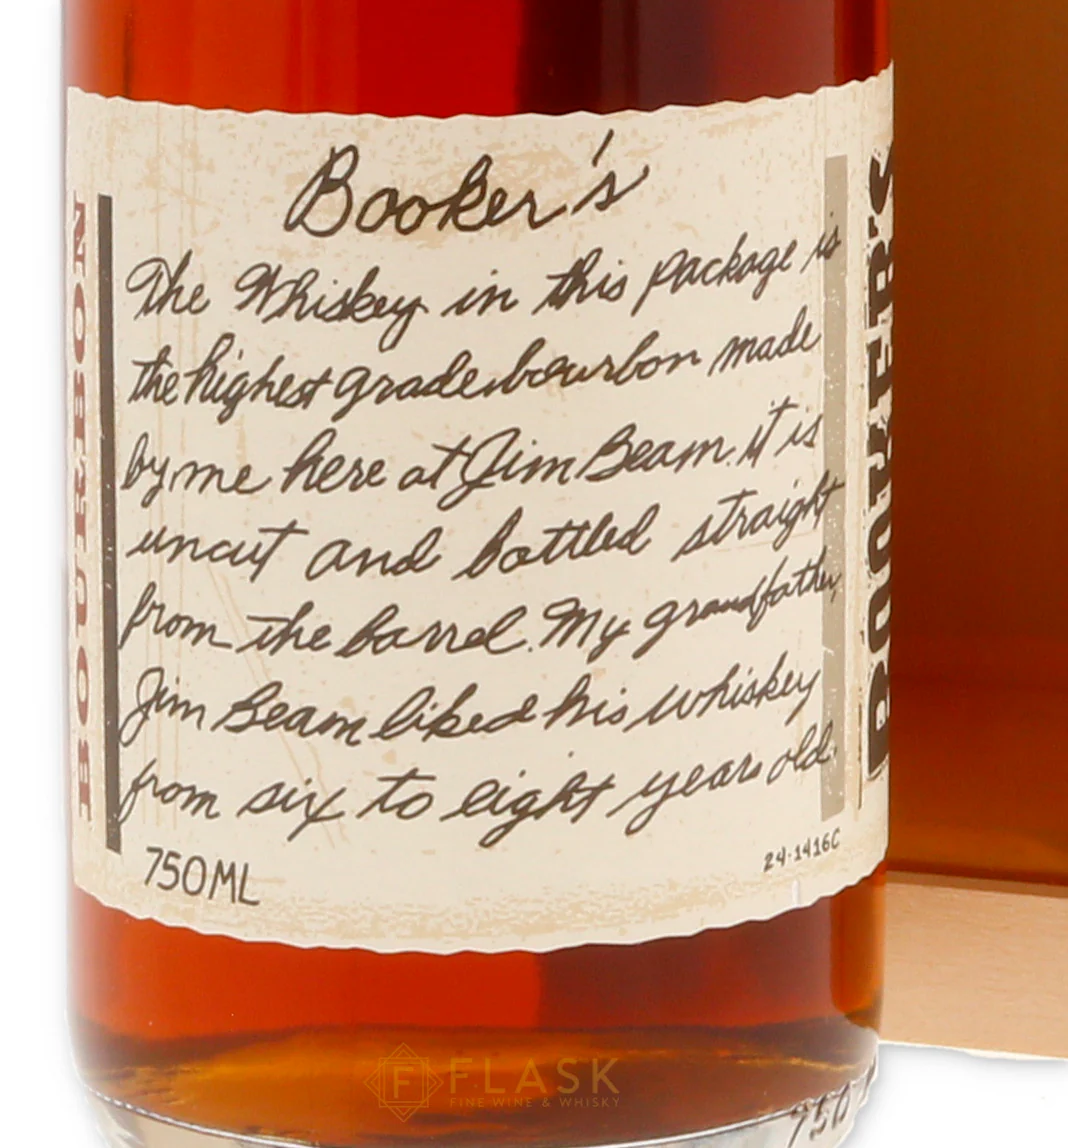 Booker's
The Whiskey in this package is
the highest grade bourbon made
by me here at Jim Beam. it is
uncut and bottled straight
from the barrel. My grandfather,
Jim Beam liked his whiskey
from six to eight years old.
750ML
24-1416C
BOURBON
BOOKER'S
FLASK
FINE WINE & WHISKY
750